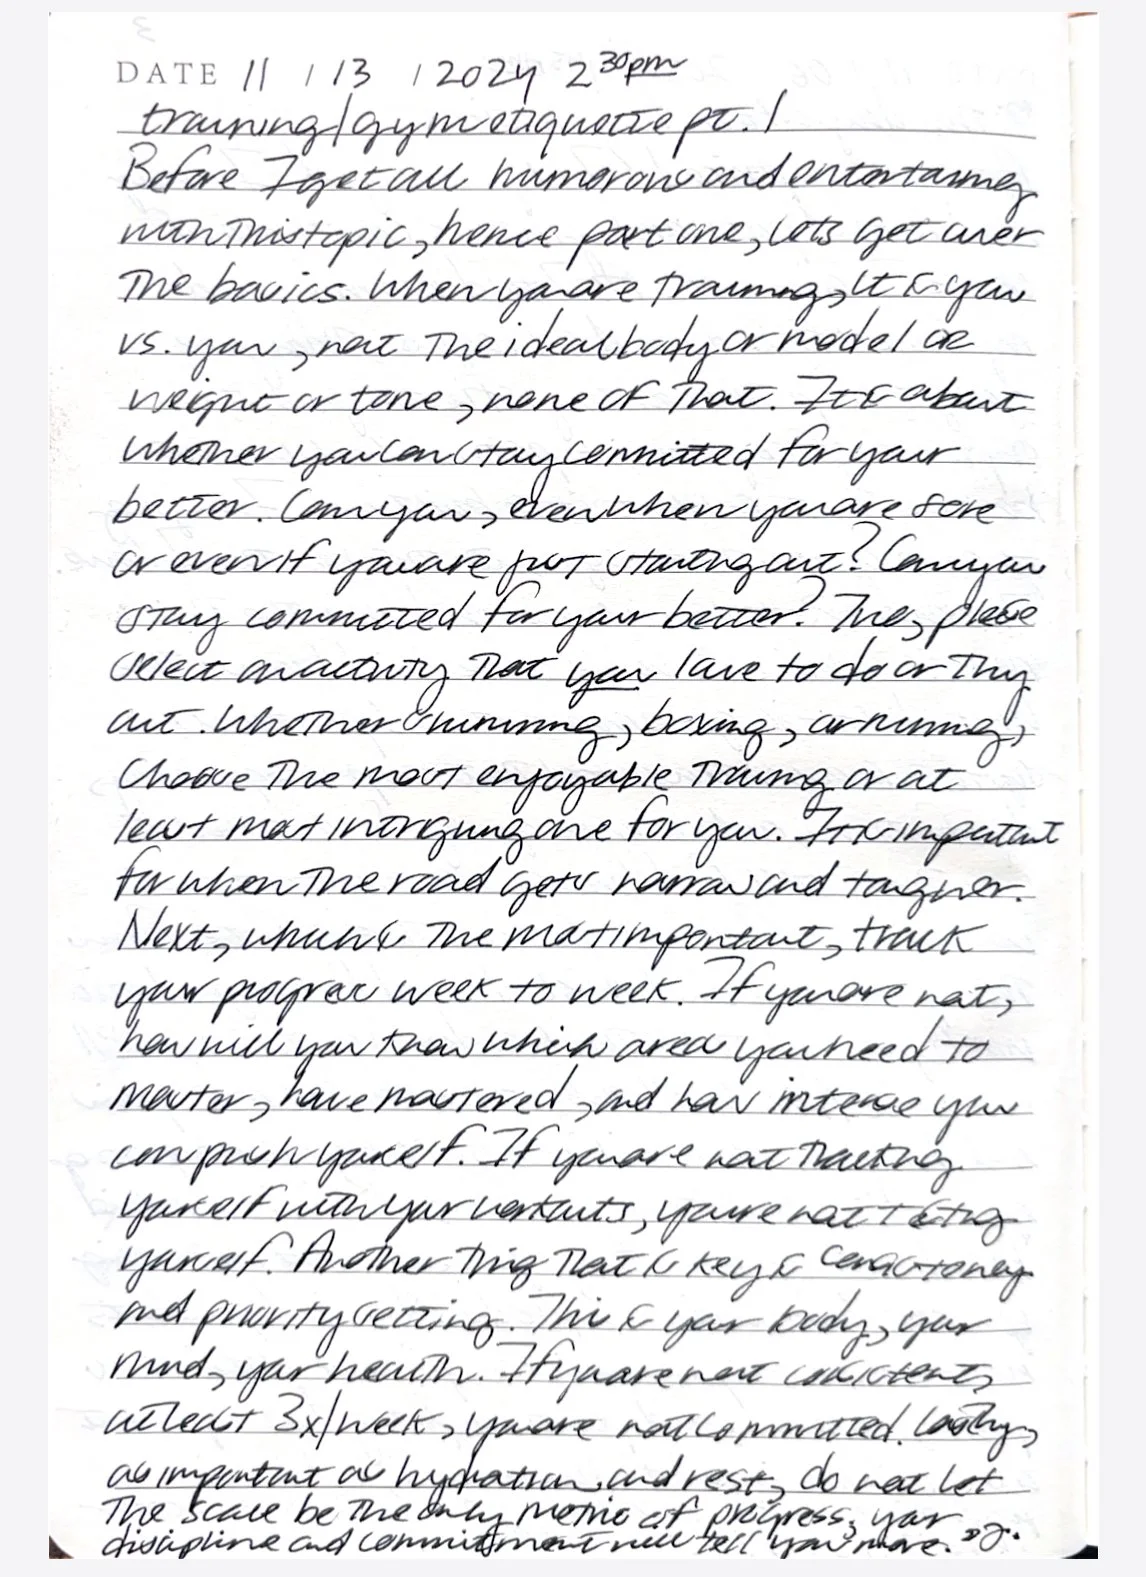 DATE 11 / 13 / 2024 2 30pm
training/gym etiquette pt. 1
Before I get all humorous and entertaining
with this topic, hence part one, lets get over
the basics. When you are training, It is you
vs. you, not the ideal body or model or
weight or tone, none of that. It is about
whether you can stay committed for your
better. Can you, even when you are sore
or even if you are just starting out? Can you
stay committed for your better? Then, please
select an activity that you love to do or try
out. Whether swimming, boxing, or running,
choose the most enjoyable training or at
least most intriguing one for you. It is important
for when the road gets narrow and tougher.
Next, which is the most important, track
your progress week to week. If you are not,
how will you know which area you need to
master, have mastered, and how intense you
can push yourself. If you are not tracking
yourself with your workouts, you're not testing
yourself. Another thing that is key is consistency
and priority setting. This is your body, your
mind, your health. If you are not consistent,
at least 3x/week, you are not committed. Lastly,
as important as hydration and rest, do not let
the scale be the only metric of progress; your
discipline and commitment will tell you more.